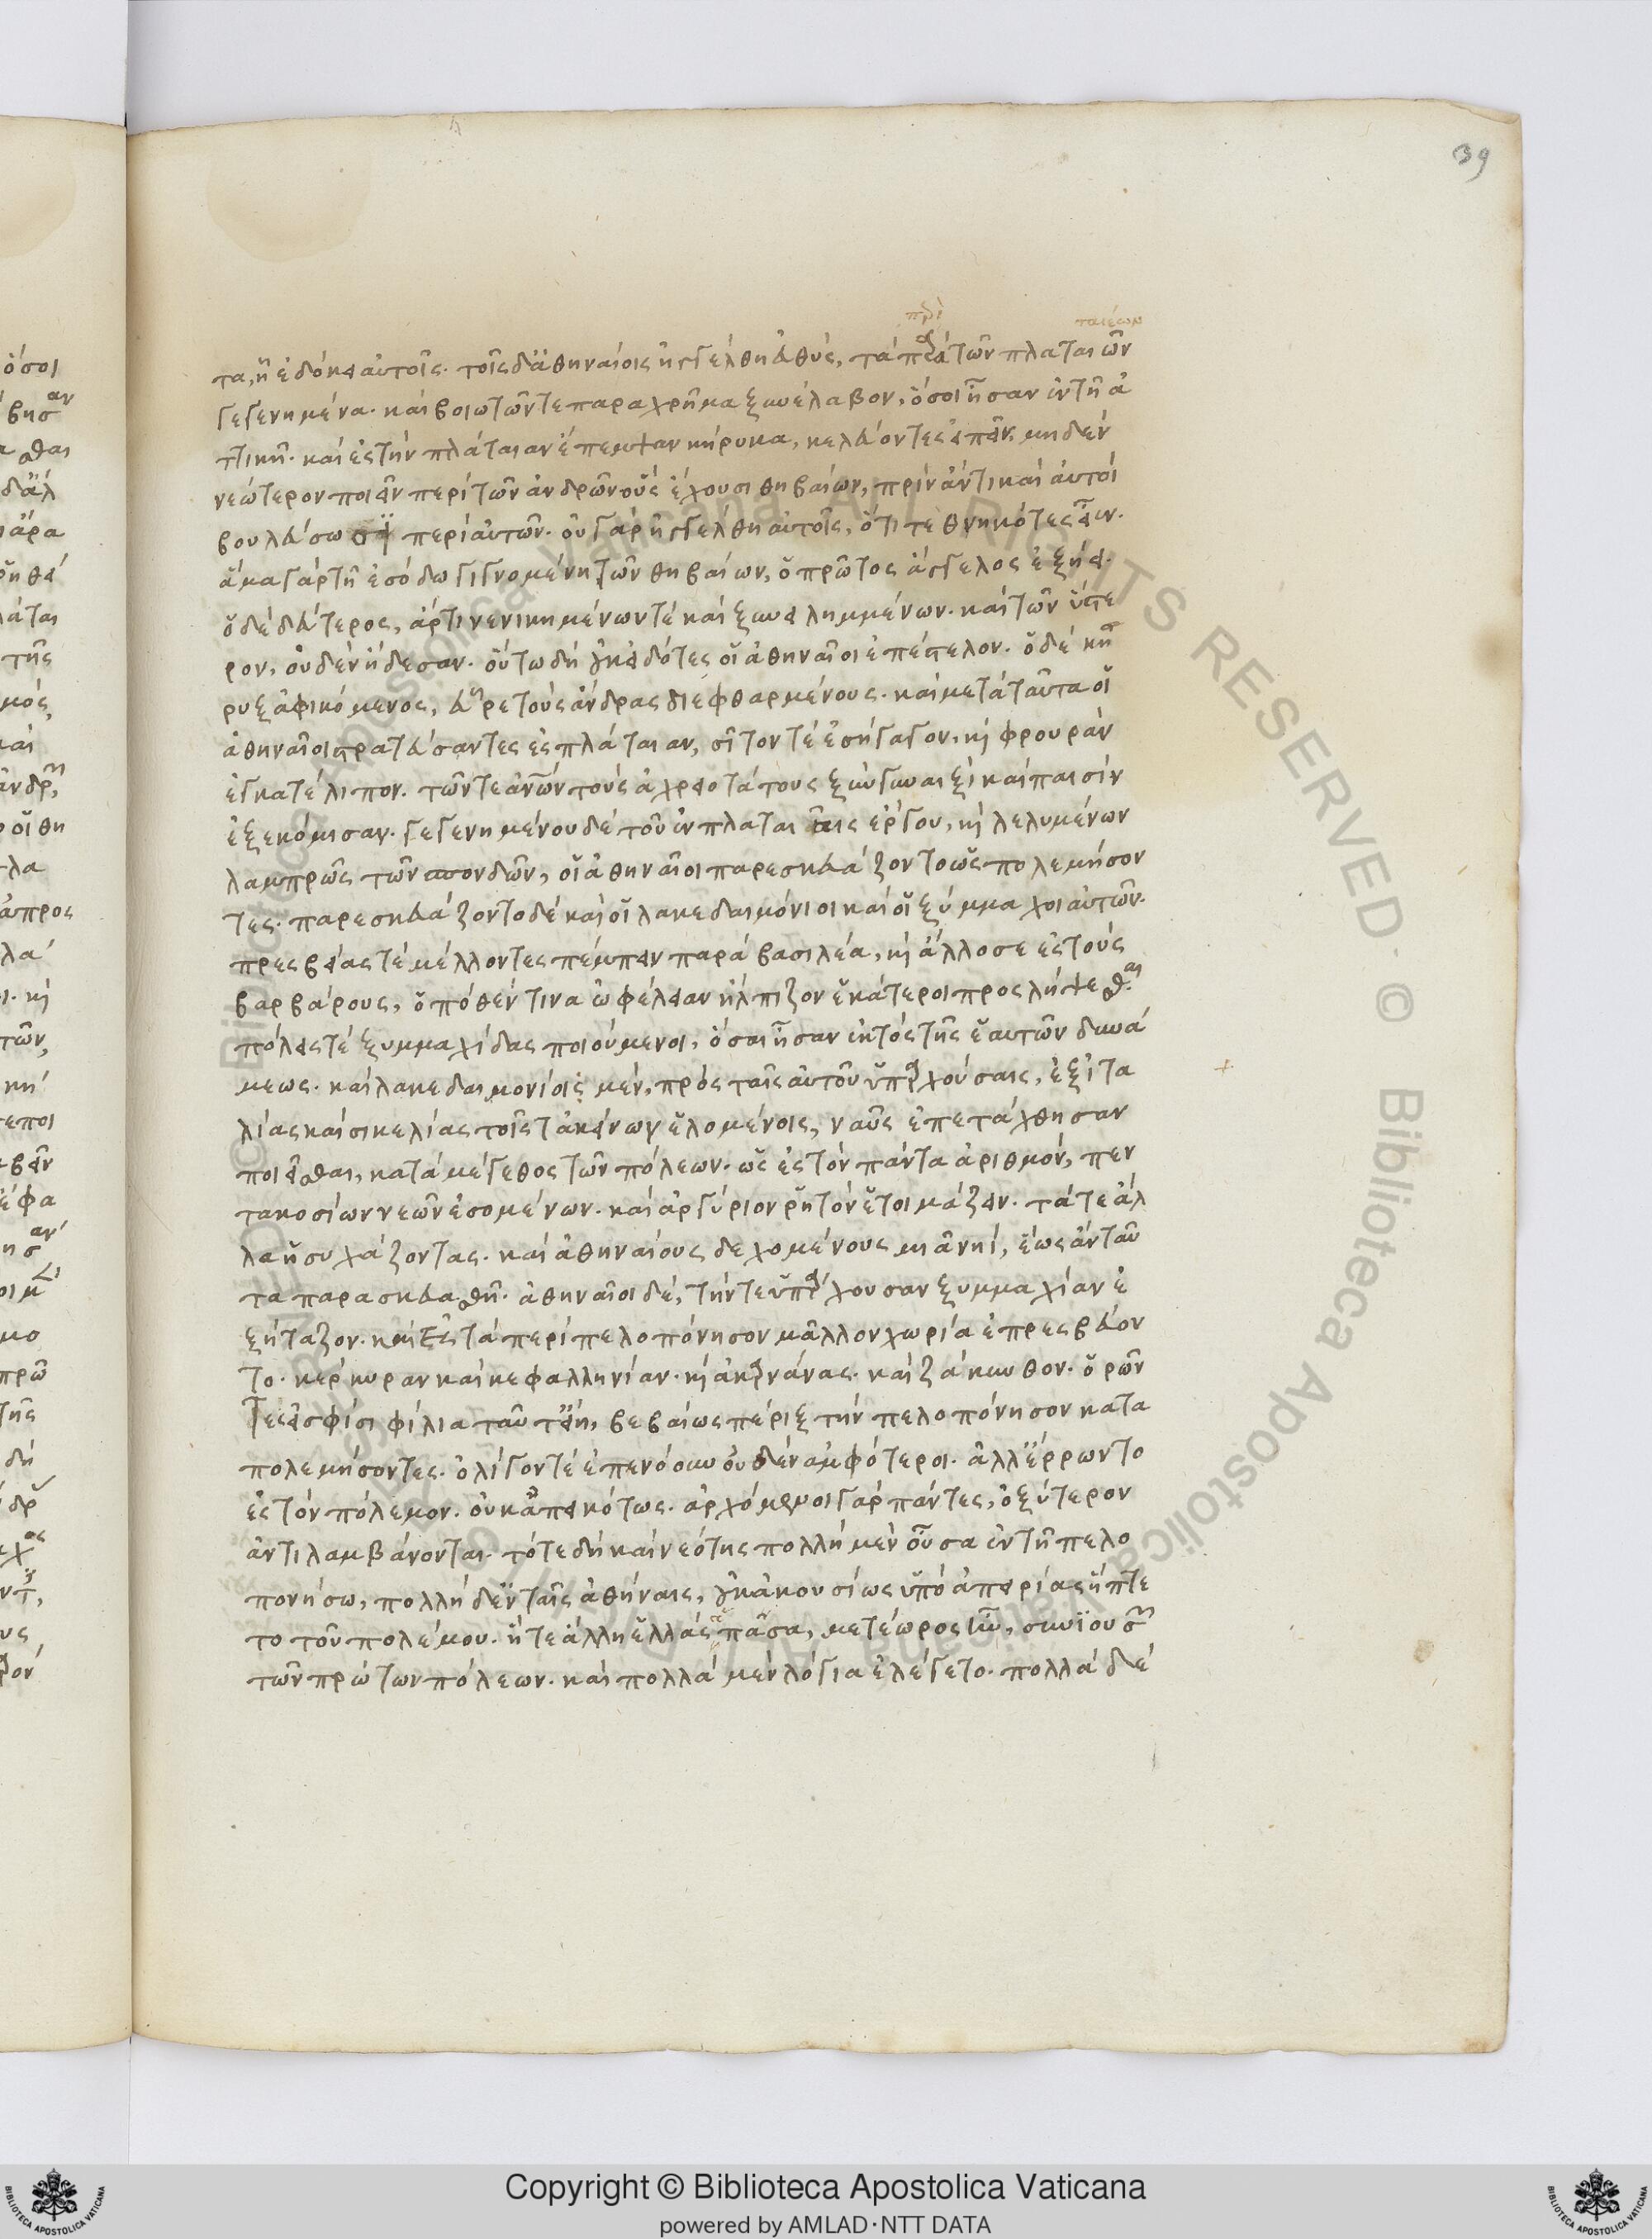 39
τα, ἣ ἐδόκει αὐτοῖς. τοῖς δ' ἀθηναίοις ἠγγέλθη εὐθὺς, τὰ περὶ τῶν πλαταιῶν
γεγενημένα. καὶ βοιωτῶν τε παραχρῆμα ξυνέλαβον, ὅσοι ἦσαν ἐν τῆ ἀ
ττικῆ. καὶ ἐς τὴν πλάταιαν ἔπεμψαν κήρυκα, κελεύοντες εἰπεῖν, μηδὲν
νεώτερον ποιεῖν περὶ τῶν ἀνδρῶν οὓς ἔχουσι θηβαίων, πρὶν ἄν τι καὶ αὐτοὶ
βουλεύσωσι περὶ αὐτῶν. οὐ γὰρ ἠγγέλθη αὐτοῖς, ὅτι τεθνηκότες εἶεν.
ἅμα γὰρ τῆ ἐσόδω γιγνομένη τῶν θηβαίων, ὁ πρῶτος ἄγγελος ἐξήει.
ὁ δὲ δεύτερος, ἄρτι νενικημένων τὲ καὶ ξυνειλημμένων. καὶ τῶν ὕστε
ρον, οὐδὲν ἤδεσαν. οὕτω δὴ οὐκ εἰδότες οἱ ἀθηναῖοι ἐπέστελον. ὁ δὲ κῆ
ρυξ ἀφικόμενος, εὗρε τοὺς ἄνδρας διεφθαρμένους. καὶ μετὰ ταῦτα οἱ
ἀθηναῖοι στρατεύσαντες ἐς πλάταιαν, σῖτον τὲ ἐσήγαγον, κὶ φρουρὰν
ἐγκατέλιπον. τῶν τε ἀνῶν τοὺς ἀχρειοτάτους ξὺν γυναιξὶ καὶ παισὶν
ἐξεκόμισαν. γεγενημένου δὲ τοῦ ἐν πλαταιαῖς ἔργου, κὶ λελυμένων
λαμπρῶς τῶν σπονδῶν, οἱ ἀθηναῖοι παρεσκευάζοντο ὡς πολεμήσον
τες. παρεσκευάζοντο δὲ καὶ οἱ λακεδαιμόνιοι καὶ οἱ ξύμμαχοι αὐτῶν.
πρεσβείας τὲ μέλλοντες πέμπειν παρὰ βασιλέα, κὶ ἄλλοσε ἐς τοὺς
βαρβάρους, ὁπόθέν τινα ὠφέλειαν ἤλπιζον ἑκάτεροι προσλήψεσθαι
πόλεις τὲ ξυμμαχίδας ποιούμενοι, ὅσαι ἦσαν ἐκτὸς τῆς ἑαυτῶν δυνά
μεως. καὶ λακεδαιμονίοις μὲν, πρὸς ταῖς αὐτοῦ ὑπαρχούσαις, ἐξ ἰτα
λίας καὶ σικελίας τοῖς τἀκείνων ἑλομένοις, ναῦς ἐπετάχθησαν
ποιεῖσθαι, κατὰ μέγεθος τῶν πόλεων. ὡς ἐς τὸν πάντα ἀριθμὸν, πεν
τακοσίων νεῶν ἐσομένων. καὶ ἀργύριον ῥητὸν ἑτοιμάζειν. τά τε ἄλ
λα ἡσυχάζοντας. καὶ ἀθηναίους δεχομένους μιᾶ νηὶ, ἕως ἂν ταῦ
τα παρασκευασθῆ. ἀθηναῖοι δὲ, τήν τε ὑπάρχουσαν ξυμμαχίαν ἐ
ξήταζον. καὶ ἐς τὰ περὶ πελοπόνησον μᾶλλον χωρία ἐπρεσβεύον
το. κερκυραν καὶ κεφαλληνίαν. κὶ ἀκαρνάνας. καὶ ζάκυνθον. ὁρῶν
τες εἰ σφίσι φίλια ταῦτ' εἴη, βεβαίως πέριξ τὴν πελοπόνησον κατα
πολεμήσοντες. ὀλίγον τὲ ἐπενόουν οὐδὲν ἀμφότεροι. ἀλλ' ἔρρωντο
ἐς τὸν πόλεμον. οὐκ ἀπεικότως. ἀρχόμενοι γὰρ πάντες, ὀξύτερον
ἀντιλαμβάνονται. τότε δὴ καὶ νεότης πολλὴ μὲν οὖσα ἐν τῆ πελο
πονήσω, πολλὴ δ' ἐν ταῖς ἀθήναις, οὐκ ἀκουσίως ὑπὸ ἀπειρίας ἥπτε
το τοῦ πολέμου. ἥ τε ἄλλη ἑλλὰς πᾶσα, μετέωρος ἦν, συνϊουσῶν
τῶν πρώτων πόλεων. καὶ πολλὰ μὲν λόγια ἐλέγετο. πολλὰ δὲ
Copyright © Biblioteca Apostolica Vaticana
powered by AMLAD·NTT DATA